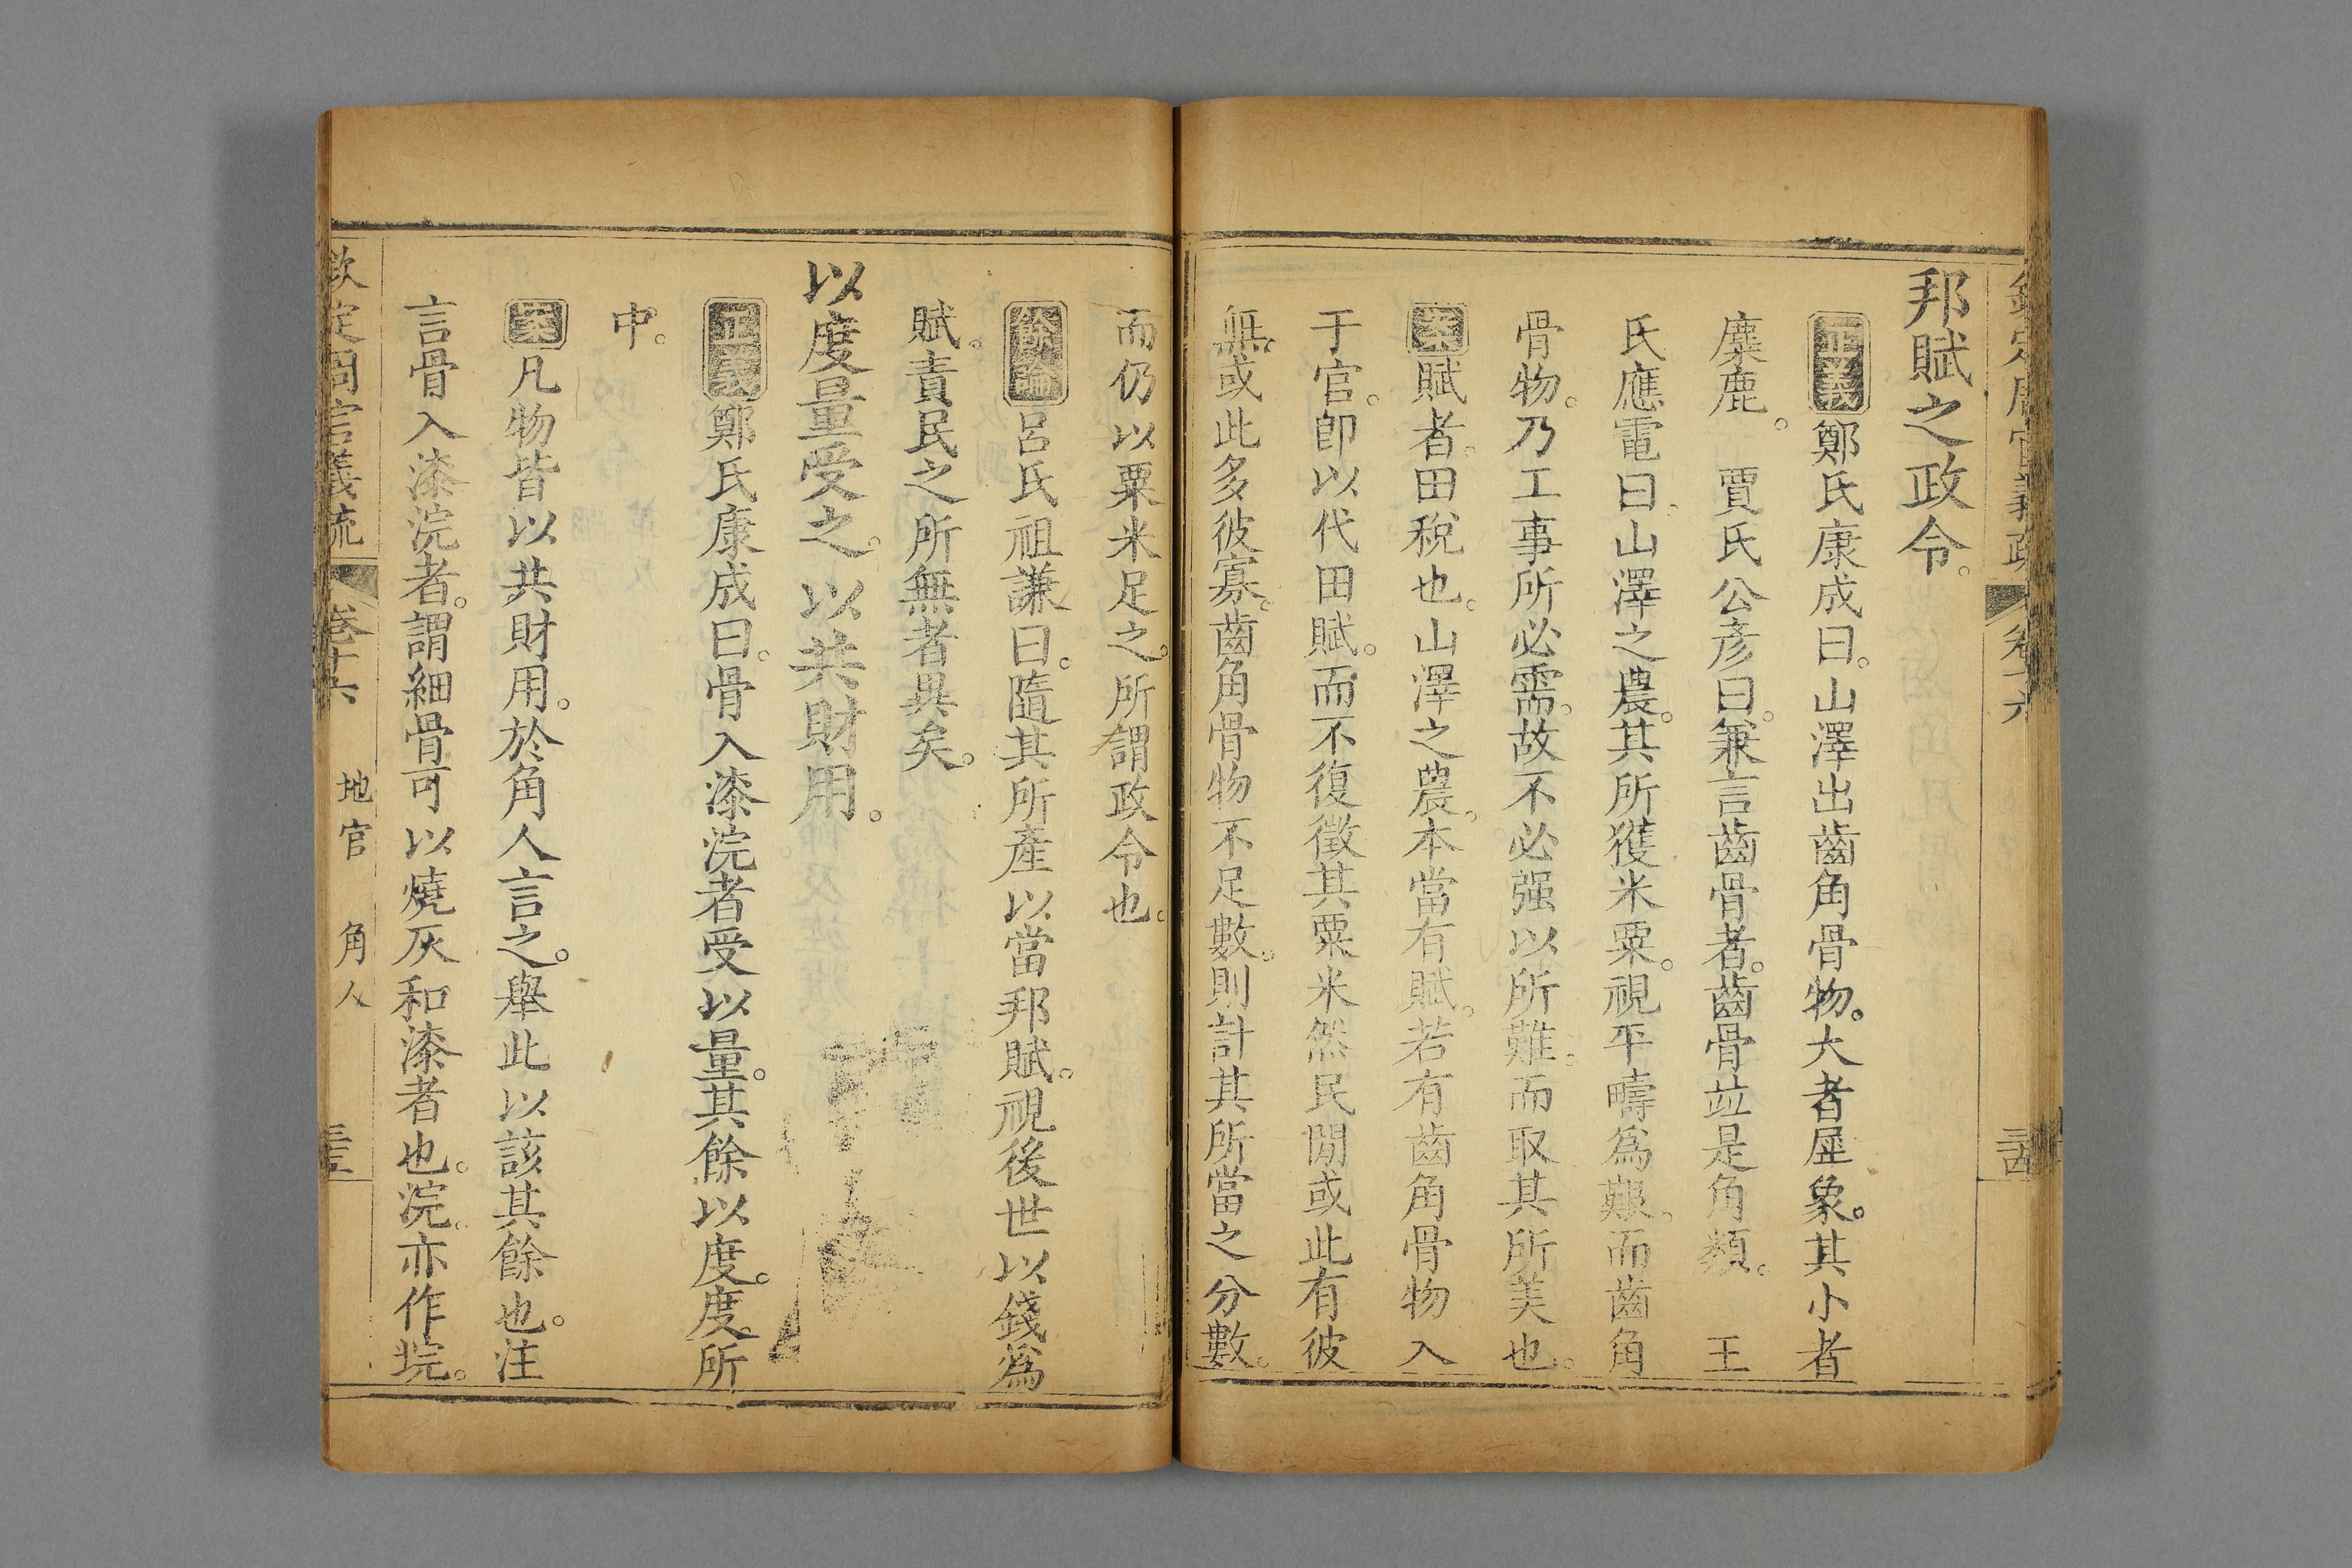 邦賦之政令。
正義鄭氏康成曰。山澤出齒角骨物。大者犀象。其小者
麋鹿。賈氏公彥曰。兼言齒骨者。齒骨竝是角類。王
氏應電曰山澤之農。其所獲米粟。視平疇爲艱。而齒角
骨物。乃工事所必需。故不必强以所難。而取其所美也。
案賦者。田稅也。山澤之農。本當有賦。若有齒角骨物入
于官。卽以代田賦。而不復徵其粟米然民閒或此有彼
無。或此多彼寡。齒角骨物不足數。則計其所當之分數。
而仍以粟米足之。所謂政令也。
餘論呂氏祖謙曰。隨其所產以當邦賦。視後世以錢爲
賦。責民之所無者異矣。
以度量受之。以共財用。
正義鄭氏康成曰。骨入漆浣者受以量。其餘以度。度。所
中。
案凡物皆以共財用。於角人言之。舉此以該其餘也。注
言骨入漆浣者。謂細骨可以燒灰和漆者也。浣。亦作垸。
欽定周官義疏 卷十六 地官 角人